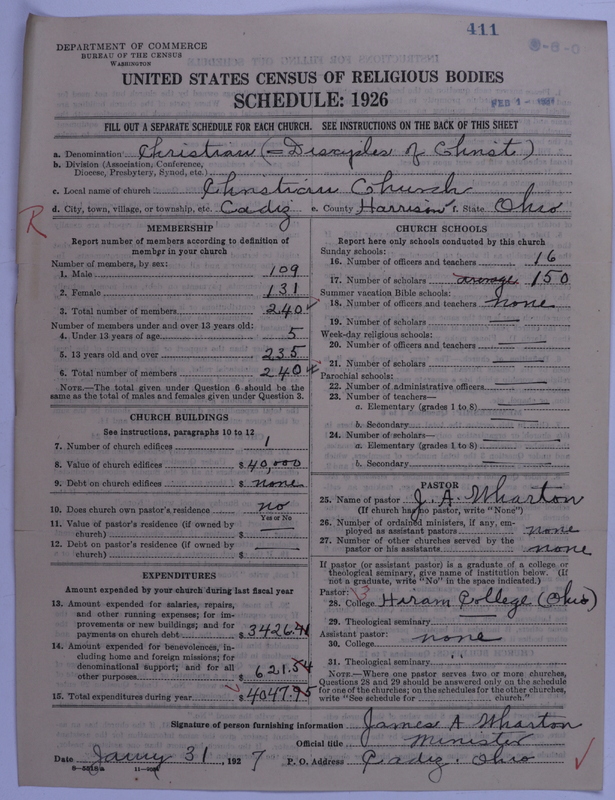 411
DEPARTMENT OF COMMERCE
BUREAU OF THE CENSUS
WASHINGTON
UNITED STATES CENSUS OF RELIGIOUS BODIES
SCHEDULE: 1926
FILL OUT A SEPARATE SCHEDULE FOR EACH CHURCH. SEE INSTRUCTIONS ON THE BACK OF THIS SHEET
a. Denomination Christian (= Disciples of Christ)
b. Division (Association, Conference, Diocese, Presbytery, Synod, etc.)
c. Local name of church Christian Church
d. City, town, village, or township, etc. Cadiz e. County Harrison f. State Ohio
R
MEMBERSHIP
Report number of members according to definition of member in your church
Number of members, by sex:
1. Male 109
2. Female 131
3. Total number of members 240
Number of members under and over 13 years old:
4. Under 13 years of age 5
5. 13 years old and over 235
6. Total number of members 240
NOTE.—The total given under Question 6 should be the same as the total of males and females given under Question 3.
CHURCH BUILDINGS
See instructions, paragraphs 10 to 12
7. Number of church edifices 1
8. Value of church edifices $ 40,000
9. Debt on church edifices $ none
10. Does church own pastor's residence no
Yes or No
11. Value of pastor's residence (if owned by church) $
12. Debt on pastor's residence (if owned by church) $
EXPENDITURES
Amount expended by your church during last fiscal year
13. Amount expended for salaries, repairs, and other running expenses; for improvements or new buildings; and for payments on church debt $ 3426.41
14. Amount expended for benevolences, including home and foreign missions; for denominational support; and for all other purposes $ 621.54
15. Total expenditures during year $ 4047.95
CHURCH SCHOOLS
Report here only schools conducted by this church
Sunday schools:
16. Number of officers and teachers 16
17. Number of scholars average 150
Summer vacation Bible schools:
18. Number of officers and teachers none
19. Number of scholars
Week-day religious schools:
20. Number of officers and teachers
21. Number of scholars
Parochial schools:
22. Number of administrative officers
23. Number of teachers—
a. Elementary (grades 1 to 8)
b. Secondary
24. Number of scholars—
a. Elementary (grades 1 to 8)
b. Secondary
PASTOR
25. Name of pastor J. A. Wharton
(If church has no pastor, write "None")
26. Number of ordained ministers, if any, employed as assistant pastors none
27. Number of other churches served by the pastor or his assistants none
If pastor (or assistant pastor) is a graduate of a college or theological seminary, give name of institution below. (If not a graduate, write "No" in the space indicated.)
Pastor:
28. College Hiram College (Ohio)
29. Theological seminary
Assistant pastor:
30. College none
31. Theological seminary "
NOTE.—Where one pastor serves two or more churches, Questions 28 and 29 should be answered only on the schedule for one of the churches; on the schedules for the other churches, write "See schedule for church."
Signature of person furnishing information James A Wharton
Official title Minister
Date Jan'y 31, 1927 P. O. Address Cadiz, Ohio